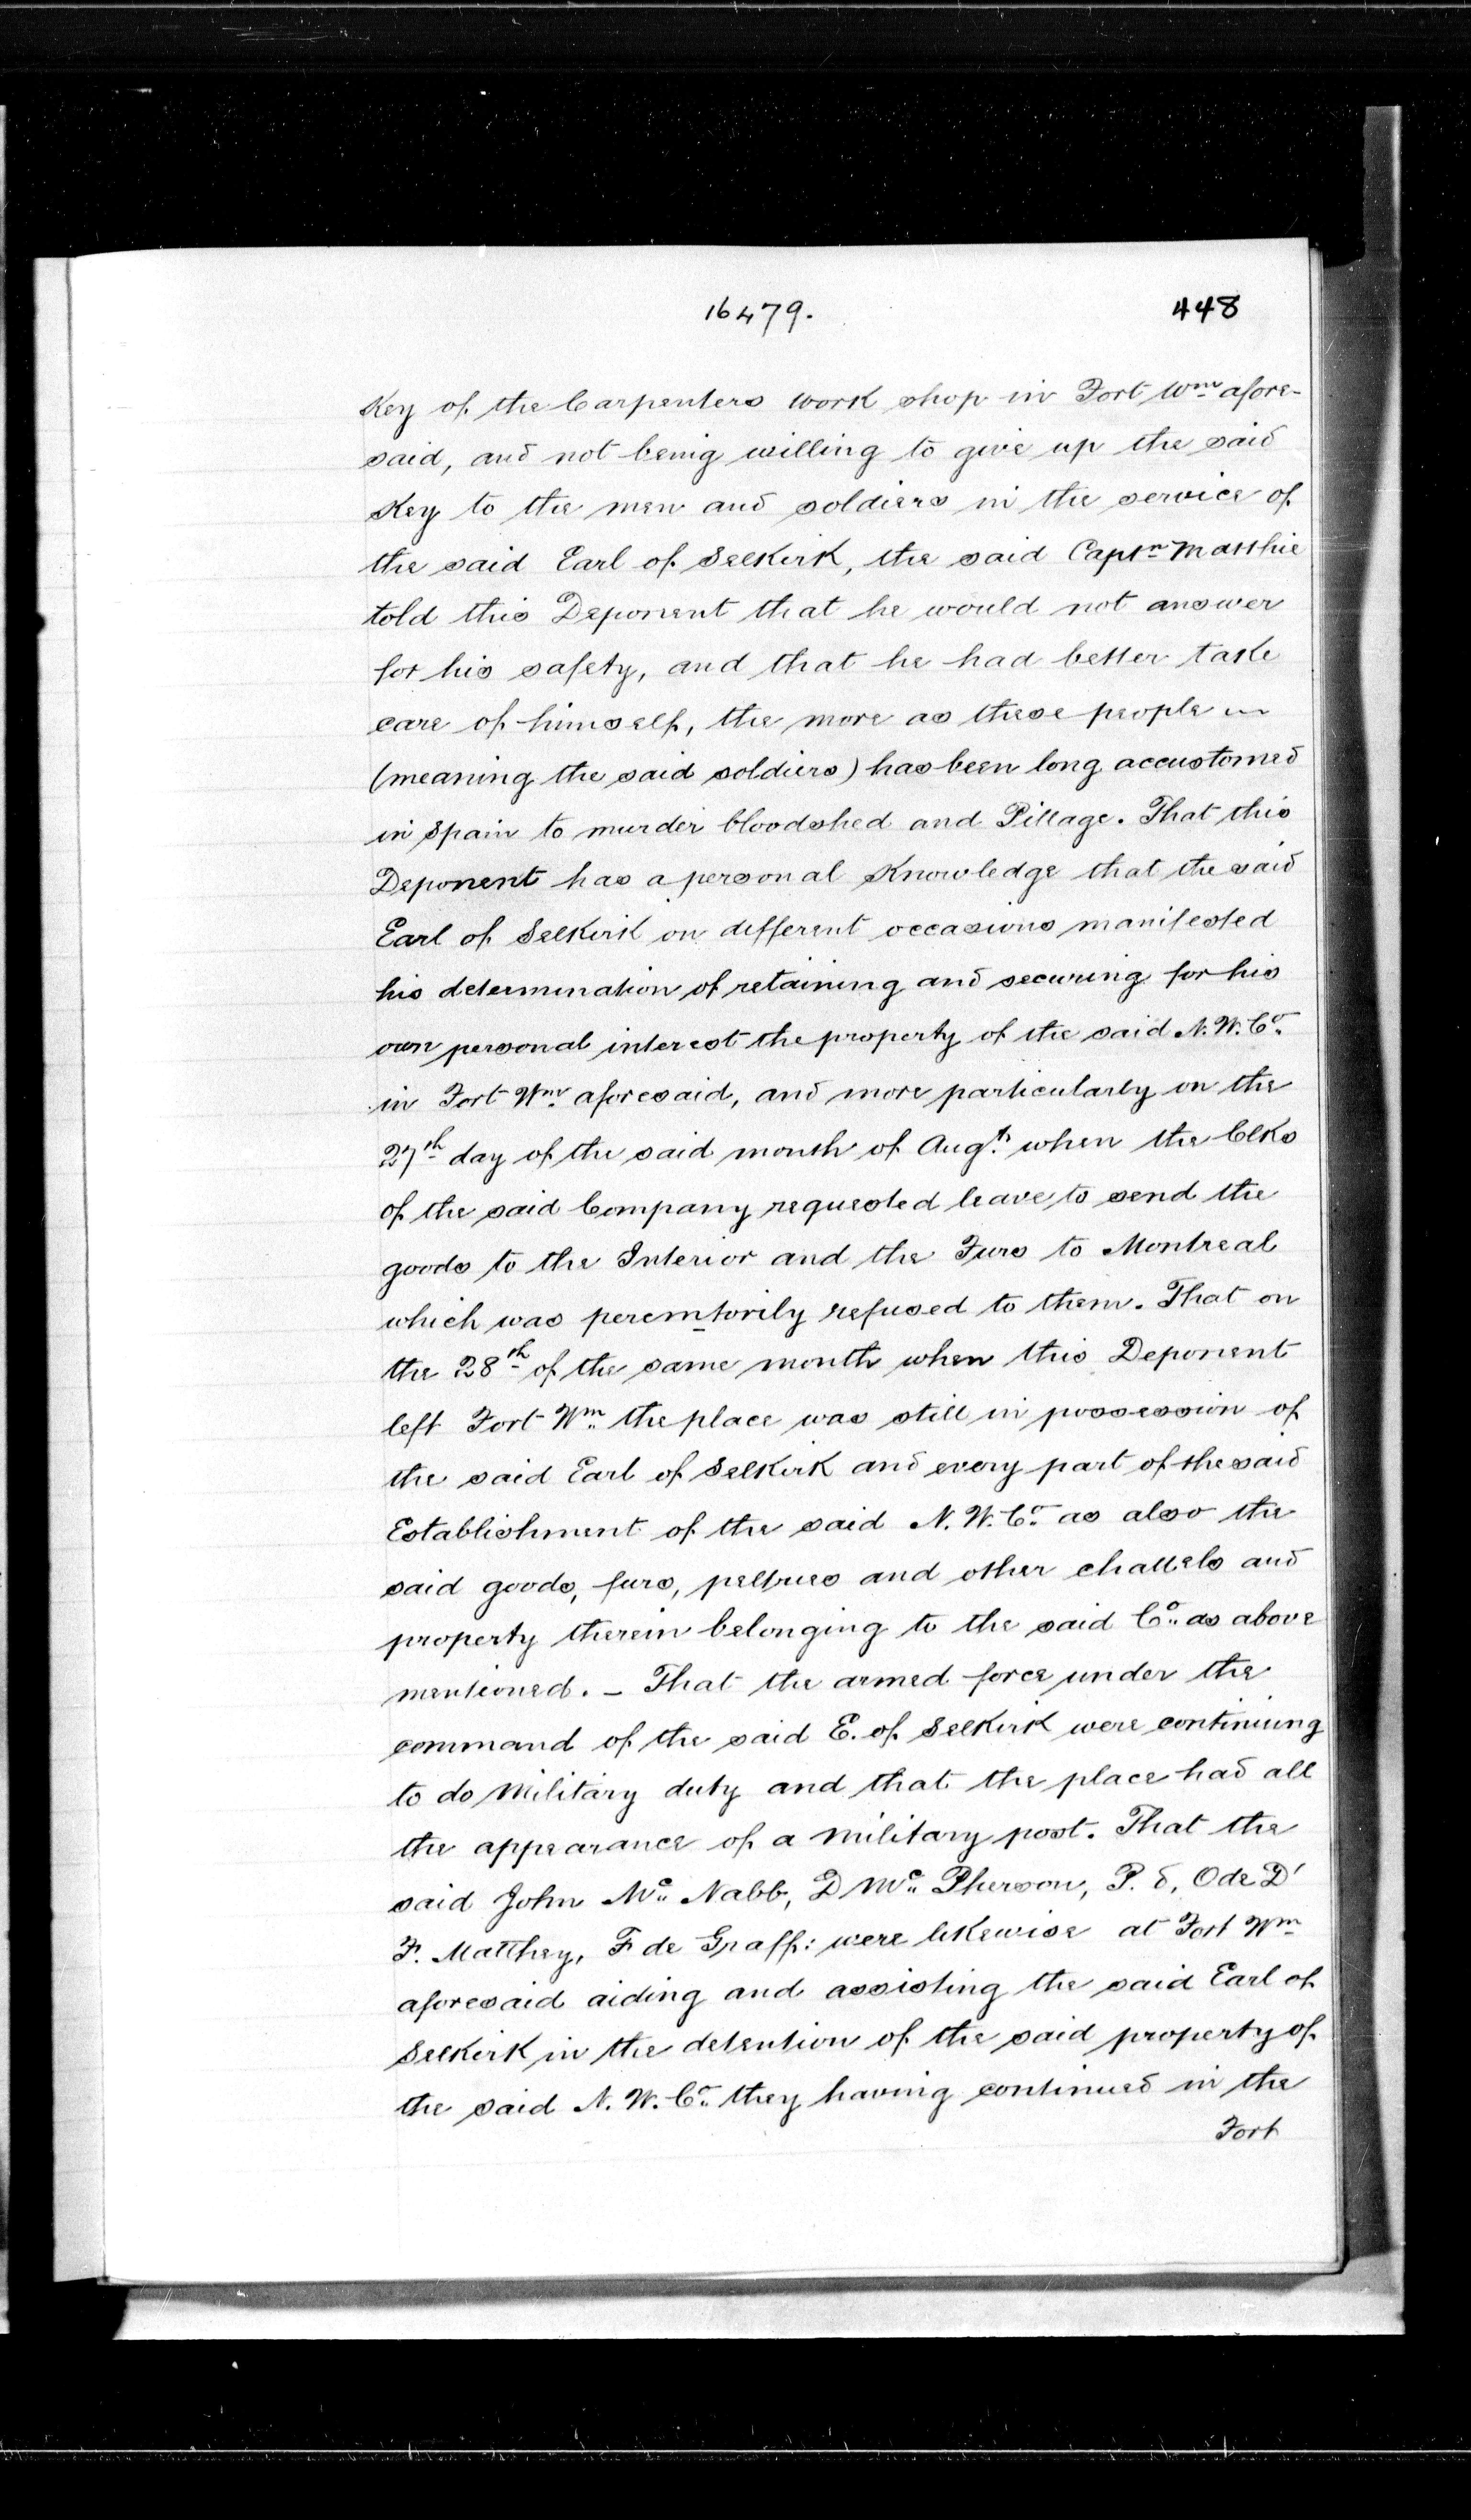 16479.
448
Key of the Carpenters work shop in Fort Wm afore-
said, and not being willing to give up the said
Key to the men and soldiers in the service of
the said Earl of Selkirk, the said Captn Matthie
told this Deponent that he would not answer
for his safety, and that he had better take
care of himself, the more as these people
(meaning the said soldiers) has been long accustomed
in Spain to murder bloodshed and Pillage. That this
Deponent has a personal Knowledge that the said
Earl of Selkirk on different occasions manifested
his determination of retaining and securing for his
own personal interest the property of the said N. W. Co.
in Fort Wm. aforesaid, and more particularly on the
27th day of the said month of Augt. when the Clks
of the said Company requested leave to send the
goods to the Interior and the Furs to Montreal
which was peremtorily refused to them. That on
the 28th of the same month when this Deponent
left Fort Wm. the place was still in possession of
the said Earl of Selkirk and every part of the said
Establishment of the said N. W. Co. as also the
said goods, furs, peltries and other chattels and
property therein belonging to the said Co. as above
mentioned. – That the armed force under the
command of the said E. of Selkirk were continuing
to do Military duty and that the place had all
the appearance of a Military post. That the
said John Mc. Nabb, D Mc. Pherson, P. d, Ode D'
F. Matthey, F de Graff: were likewise at Fort Wm
aforesaid aiding and assisting the said Earl of
Selkirk in the detention of the said property of
the said N. W. Co. they having continued in the
Fort